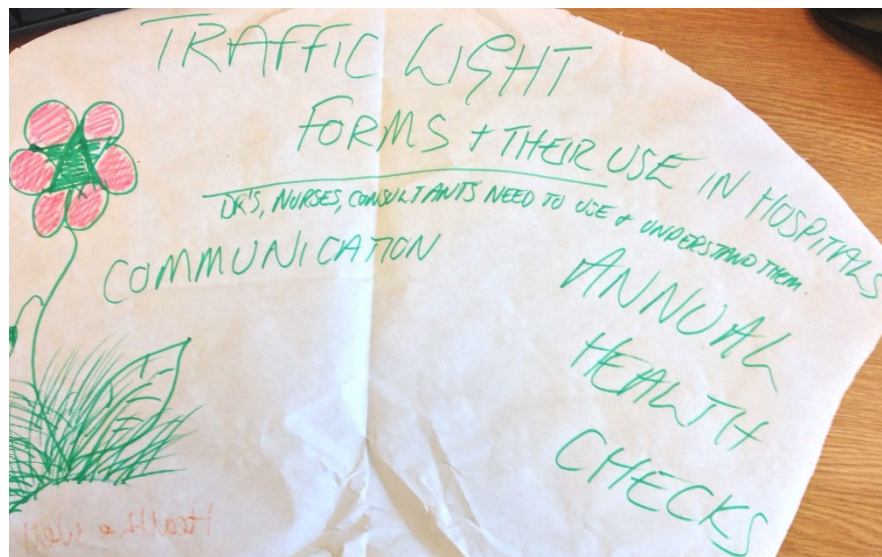 TRAFFIC LIGHT
FORMS + THEIR USE IN HOSPITALS
DR'S, NURSES, CONSULTANTS NEED TO USE + UNDERSTAND THEM.
COMMUNICATION
ANNUAL
HEALTH
CHECKS
Health & Well